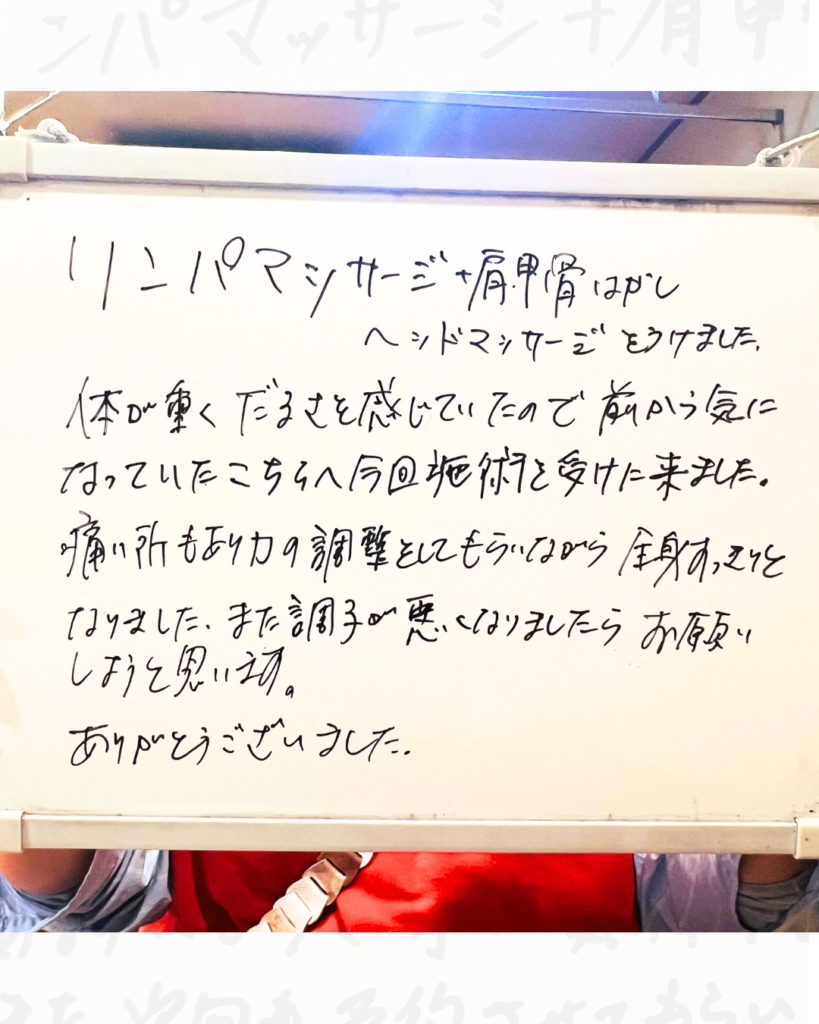 ンパマッサージ+肩甲
リンパマッサージ+肩甲骨はがし
ヘッドマッサージをうけました。
体が重くだるさを感じていたので前から気に
なっていたこちらへ今回施術を受けに来ました。
痛い所もあり力の調整をしてもらいながら全身すっきりと
なりました、また調子が悪くなりましたらお願い
しようと思います。
ありがとうございました。